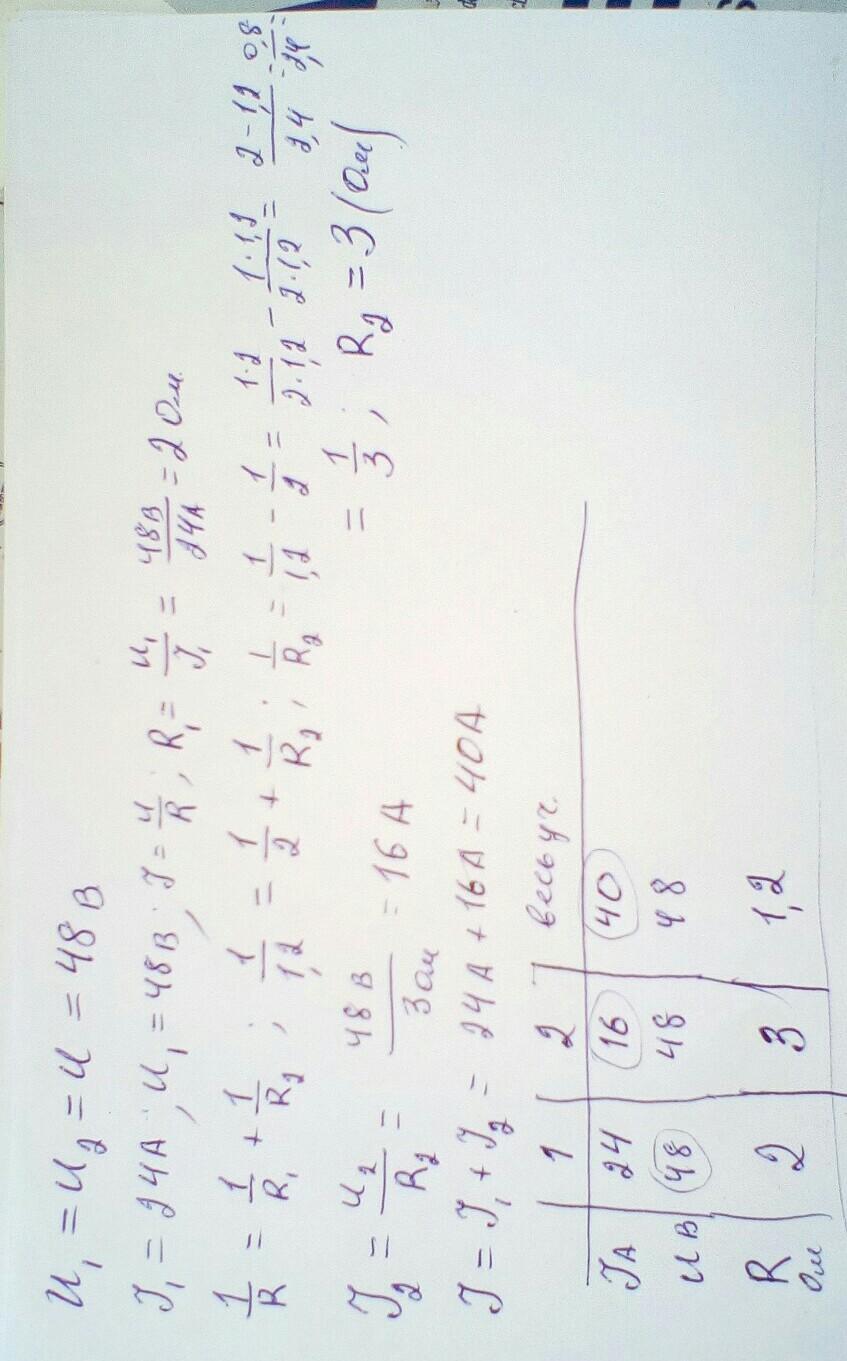 U₁ = U₂ = U = 48 В
J₁ = 24А; U₁ = 48В; J = U/R; R₁ = U₁/J₁ = 48В/24А = 2 Ом
1/R = 1/R₁ + 1/R₂; 1/1,2 = 1/2 + 1/R₂; 1/R₂ = 1/1,2 - 1/2 = 1·2/2·1,2 - 1·1,2/2·1,2 = 2-1,2/2,4 = 0,8/2,4 =
= 1/3; R₂ = 3 (Ом)
J₂ = U₂/R₂ = 48 В/3 Ом = 16 А
J = J₁ + J₂ = 24А + 16А = 40А
1 2 весь уч.
JА 24 16 40
U В 48 48 48
R Ом 2 3 1,2